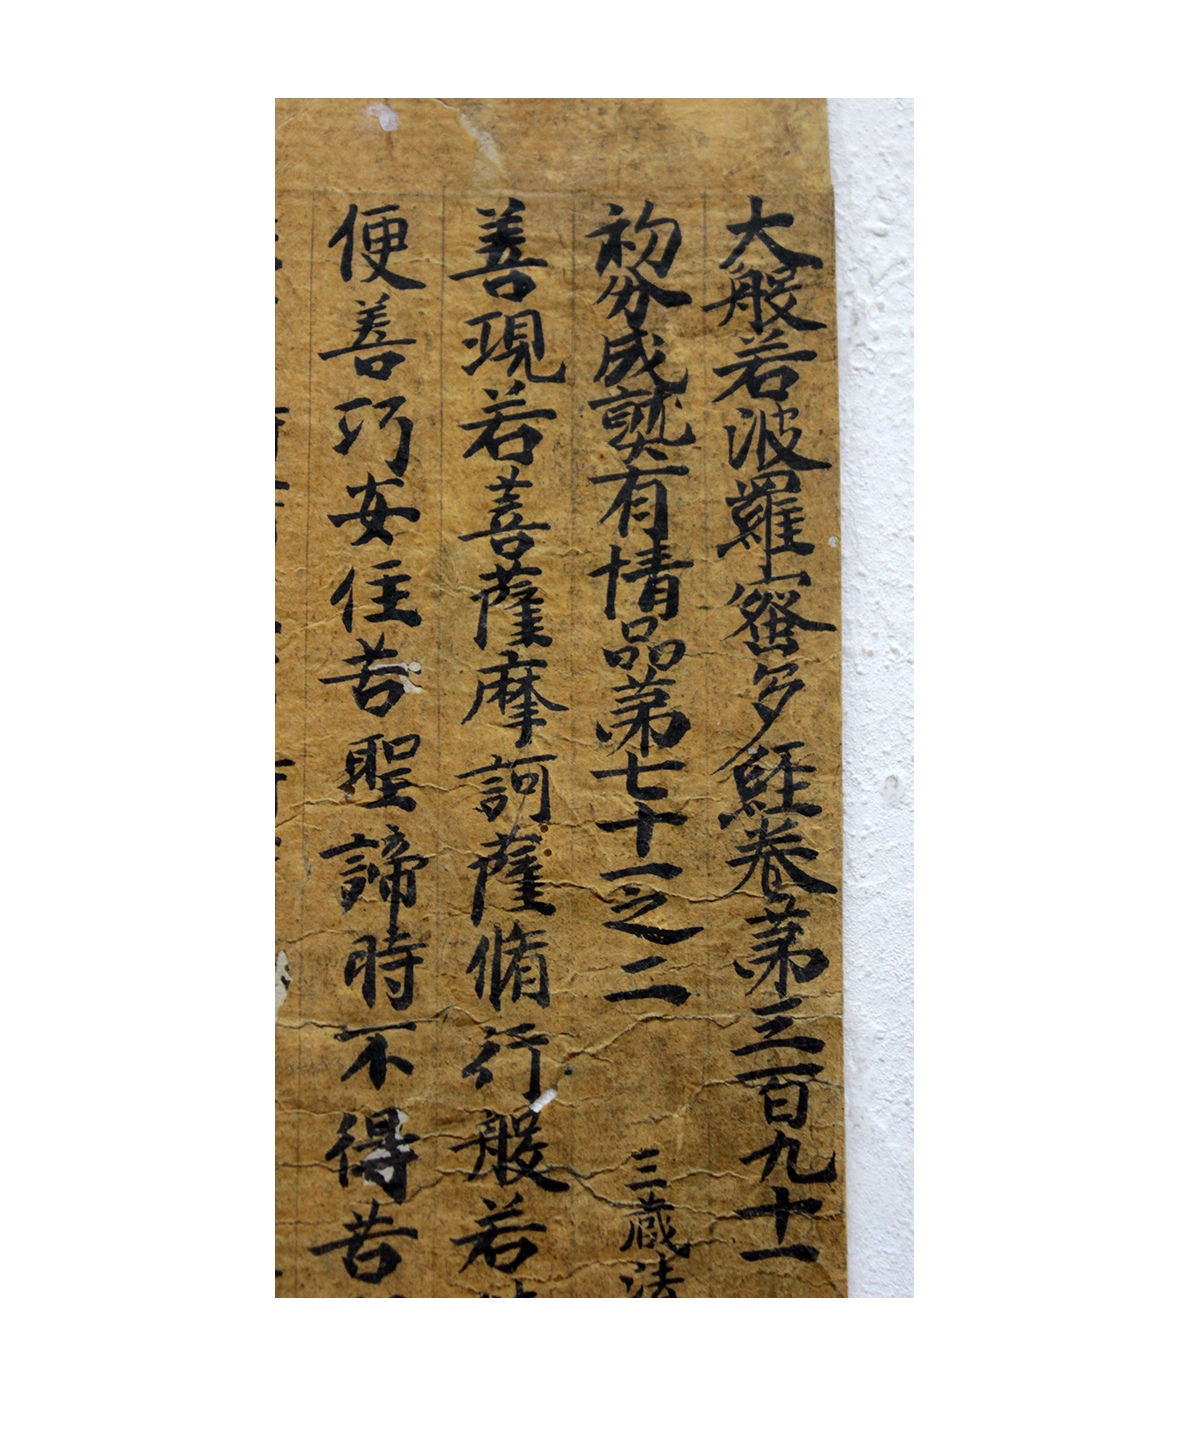 大般若波羅蜜多經卷第三百九十一
初分成熟有情品第七十一之二
三藏法
善現若菩薩摩訶薩脩行般若
便善巧安住苦聖諦時不得苦